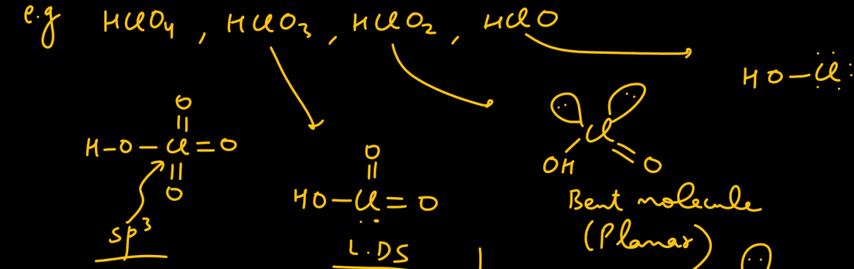 e.g HClO4, HClO3, HClO2, HClO
HO-Cl:
O
H-O-Cl=O
O
sp3
O
HO-Cl=O
L.DS
Cl
OH O
Bent molecule
(Planar)